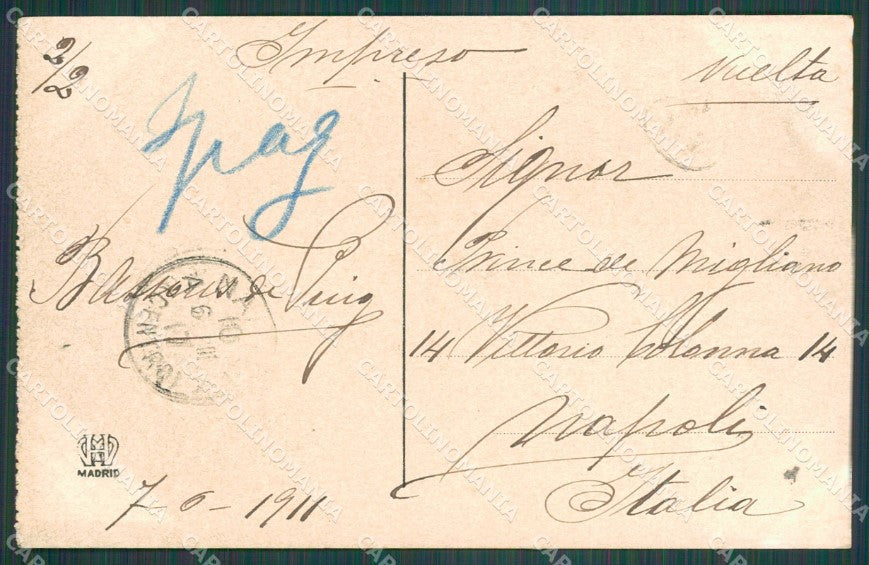 2/2
Impreso
Vuelta
Spag
Signor
Prince de Migliano
14 Vittorio Colonna 14
Napoli
Italia
de Puig
MADRID
7 6 - 1911
CARTOLINOMANIA